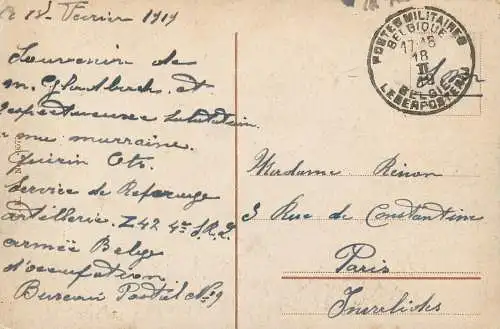 le 18 Février 1919
Souvenir de
m. Gladbach et
respectueuse salutation
a ma marraine.
Quirin Ots.
Service de Reperage
artillerie. Z42 4e
armée Belge
d'occupation
Bureau Postal No 9
POSTES MILITAIRES
BELGIQUE
17-18
18
II
BELGIE
LEGERPOSTERIJ
Madame Renon
3 Rue de Constantine
Paris
Invalides